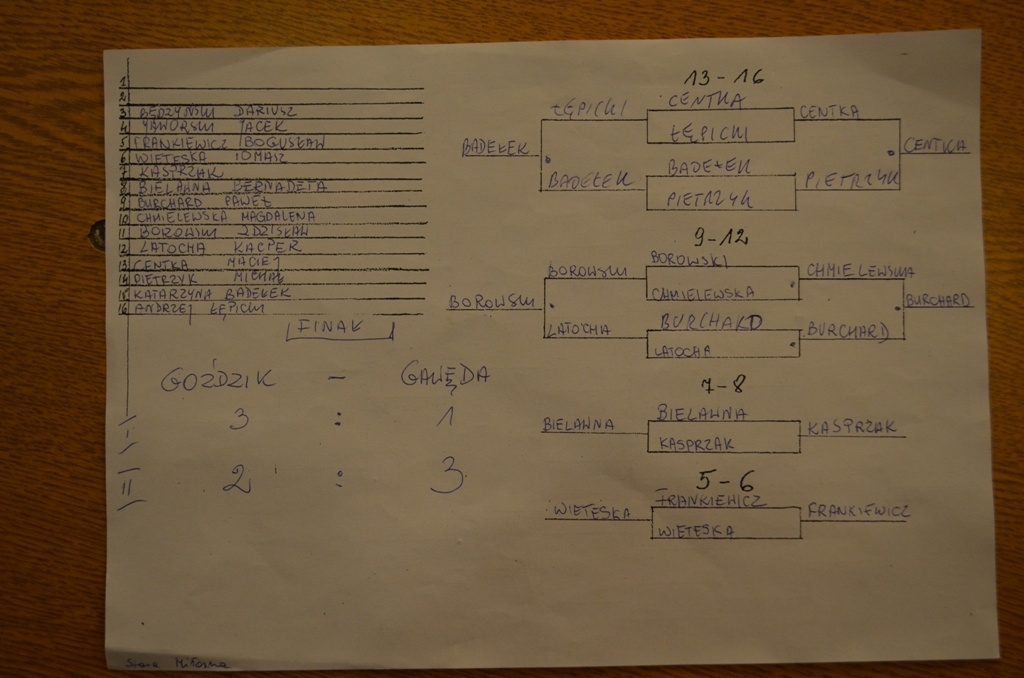 1
2
3 BĘDZYŃSKI DARIUSZ
4 JAWORSKI JACEK
5 FRANKIEWICZ BOGUSŁAW
6 WIETESKA TOMASZ
7 KASPRZAK
8 BIELAWNA BERNADETA
9 BURCHARD PAWEŁ
10 CHMIELEWSKA MAGDALENA
11 BOROWSKI ZDZISŁAW
12 LATOCHA KACPER
13 CENTKA MACIEJ
14 PIETRZYK MICHAŁ
15 KATARZYNA BADEŁEK
16 ANDRZEJ ŁĘPICKI
FINAŁ
GOŹDZIK - GAWĘDA
I 3 : 1
II 2 : 3
13 - 16
ŁĘPICKI CENTKA CENTKA
ŁĘPICKI
BADEŁEK CENTKA
BADEŁEK BADEŁEK PIETRZYK
PIETRZYK
9 - 12
BOROWSKI BOROWSKI CHMIELEWSKA
CHMIELEWSKA
BOROWSKI BURCHARD
LATOCHA BURCHARD BURCHARD
LATOCHA
7 - 8
BIELAWNA BIELAWNA KASPRZAK
KASPRZAK
5 - 6
WIETESKA FRANKIEWICZ FRANKIEWICZ
WIETESKA
Miłosna